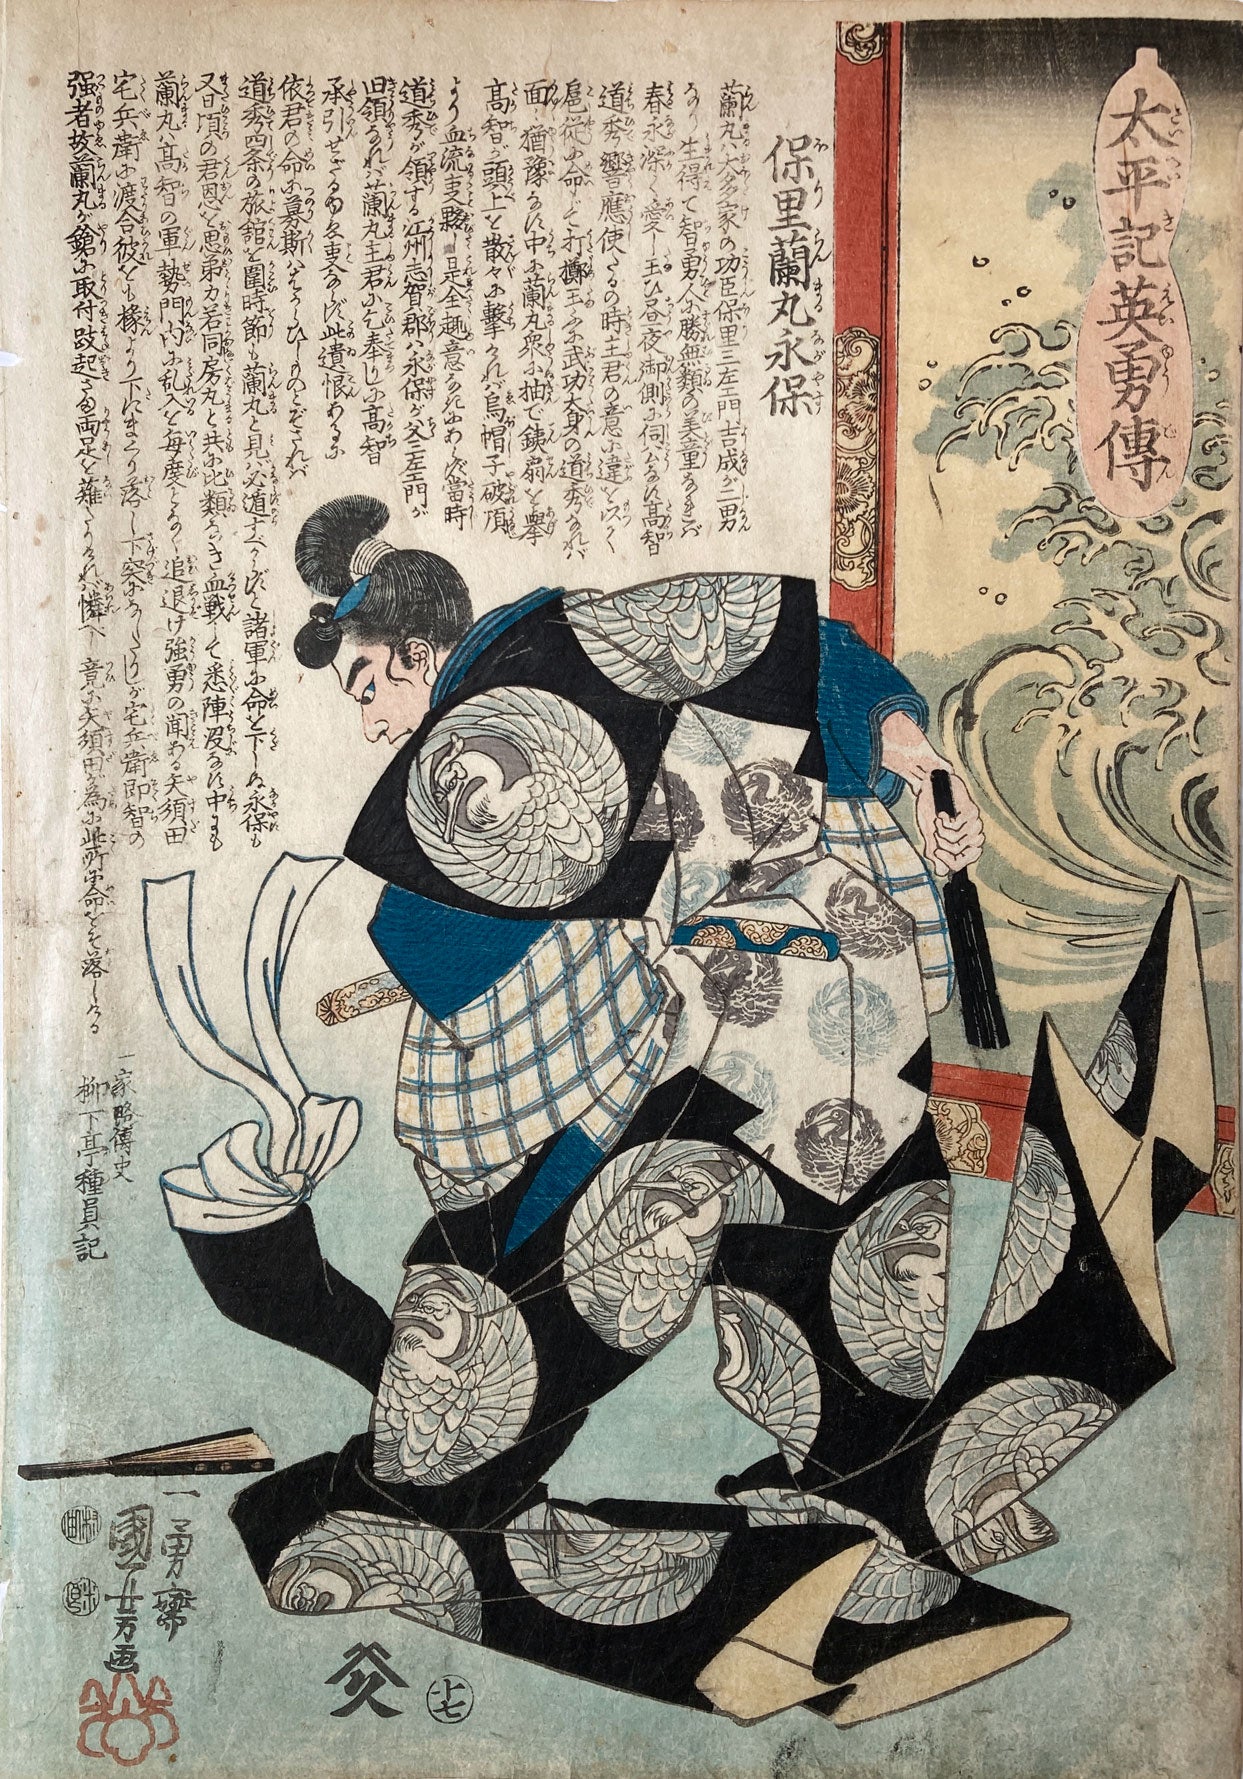 太平記英勇傳
保里蘭丸永保
蘭丸ハ大多家の功臣保里三左エ門吉成が二男
なり生得て智勇人に勝無類の美童なれバ
春永深く愛し玉ひ昼夜御側に伺公なす髙智
道秀饗應使たるの時主君の意に違を以て
扈従に命じて打擲玉ふに武功大身の道秀なれバ
面〻猶豫なす中に蘭丸衆に抽で鉄扇を挙
髙智が頭上を散々に撃けれバ烏帽子破頂
より血流事夥是全趣意なきにあらず當時
道秀が領する江州志賀郡ハ永保が父三左エ門が
旧領なれバ蘭丸主君に乞奉りしに髙智
承引せざるゆゑ事ならず此遺恨あるに
依君の命に募斯はずかしめしものとぞされバ
道秀四条の旅舘を圍時節も蘭丸と見バ必遁すべからずと諸軍に命を下しぬ永保も
又日頃の君恩を思弟力若同房丸と共に比類なき血戦して悉陣没なす中にも
蘭丸ハ髙智の軍勢門内に乱入を毎度となく追退け強勇の聞ある矢須田
宅兵衛に渡合彼をも椽より下にまくり落し下突になしたりしが宅兵衛即智の
強者故蘭丸が鎗に取付跂起さま両足を薙たりけれバ憐べし竟に矢須田が為に此所に命をぞ落しける
一家略傳史
柳下亭種員記
一勇齋
國芳画
村田
米良
十七